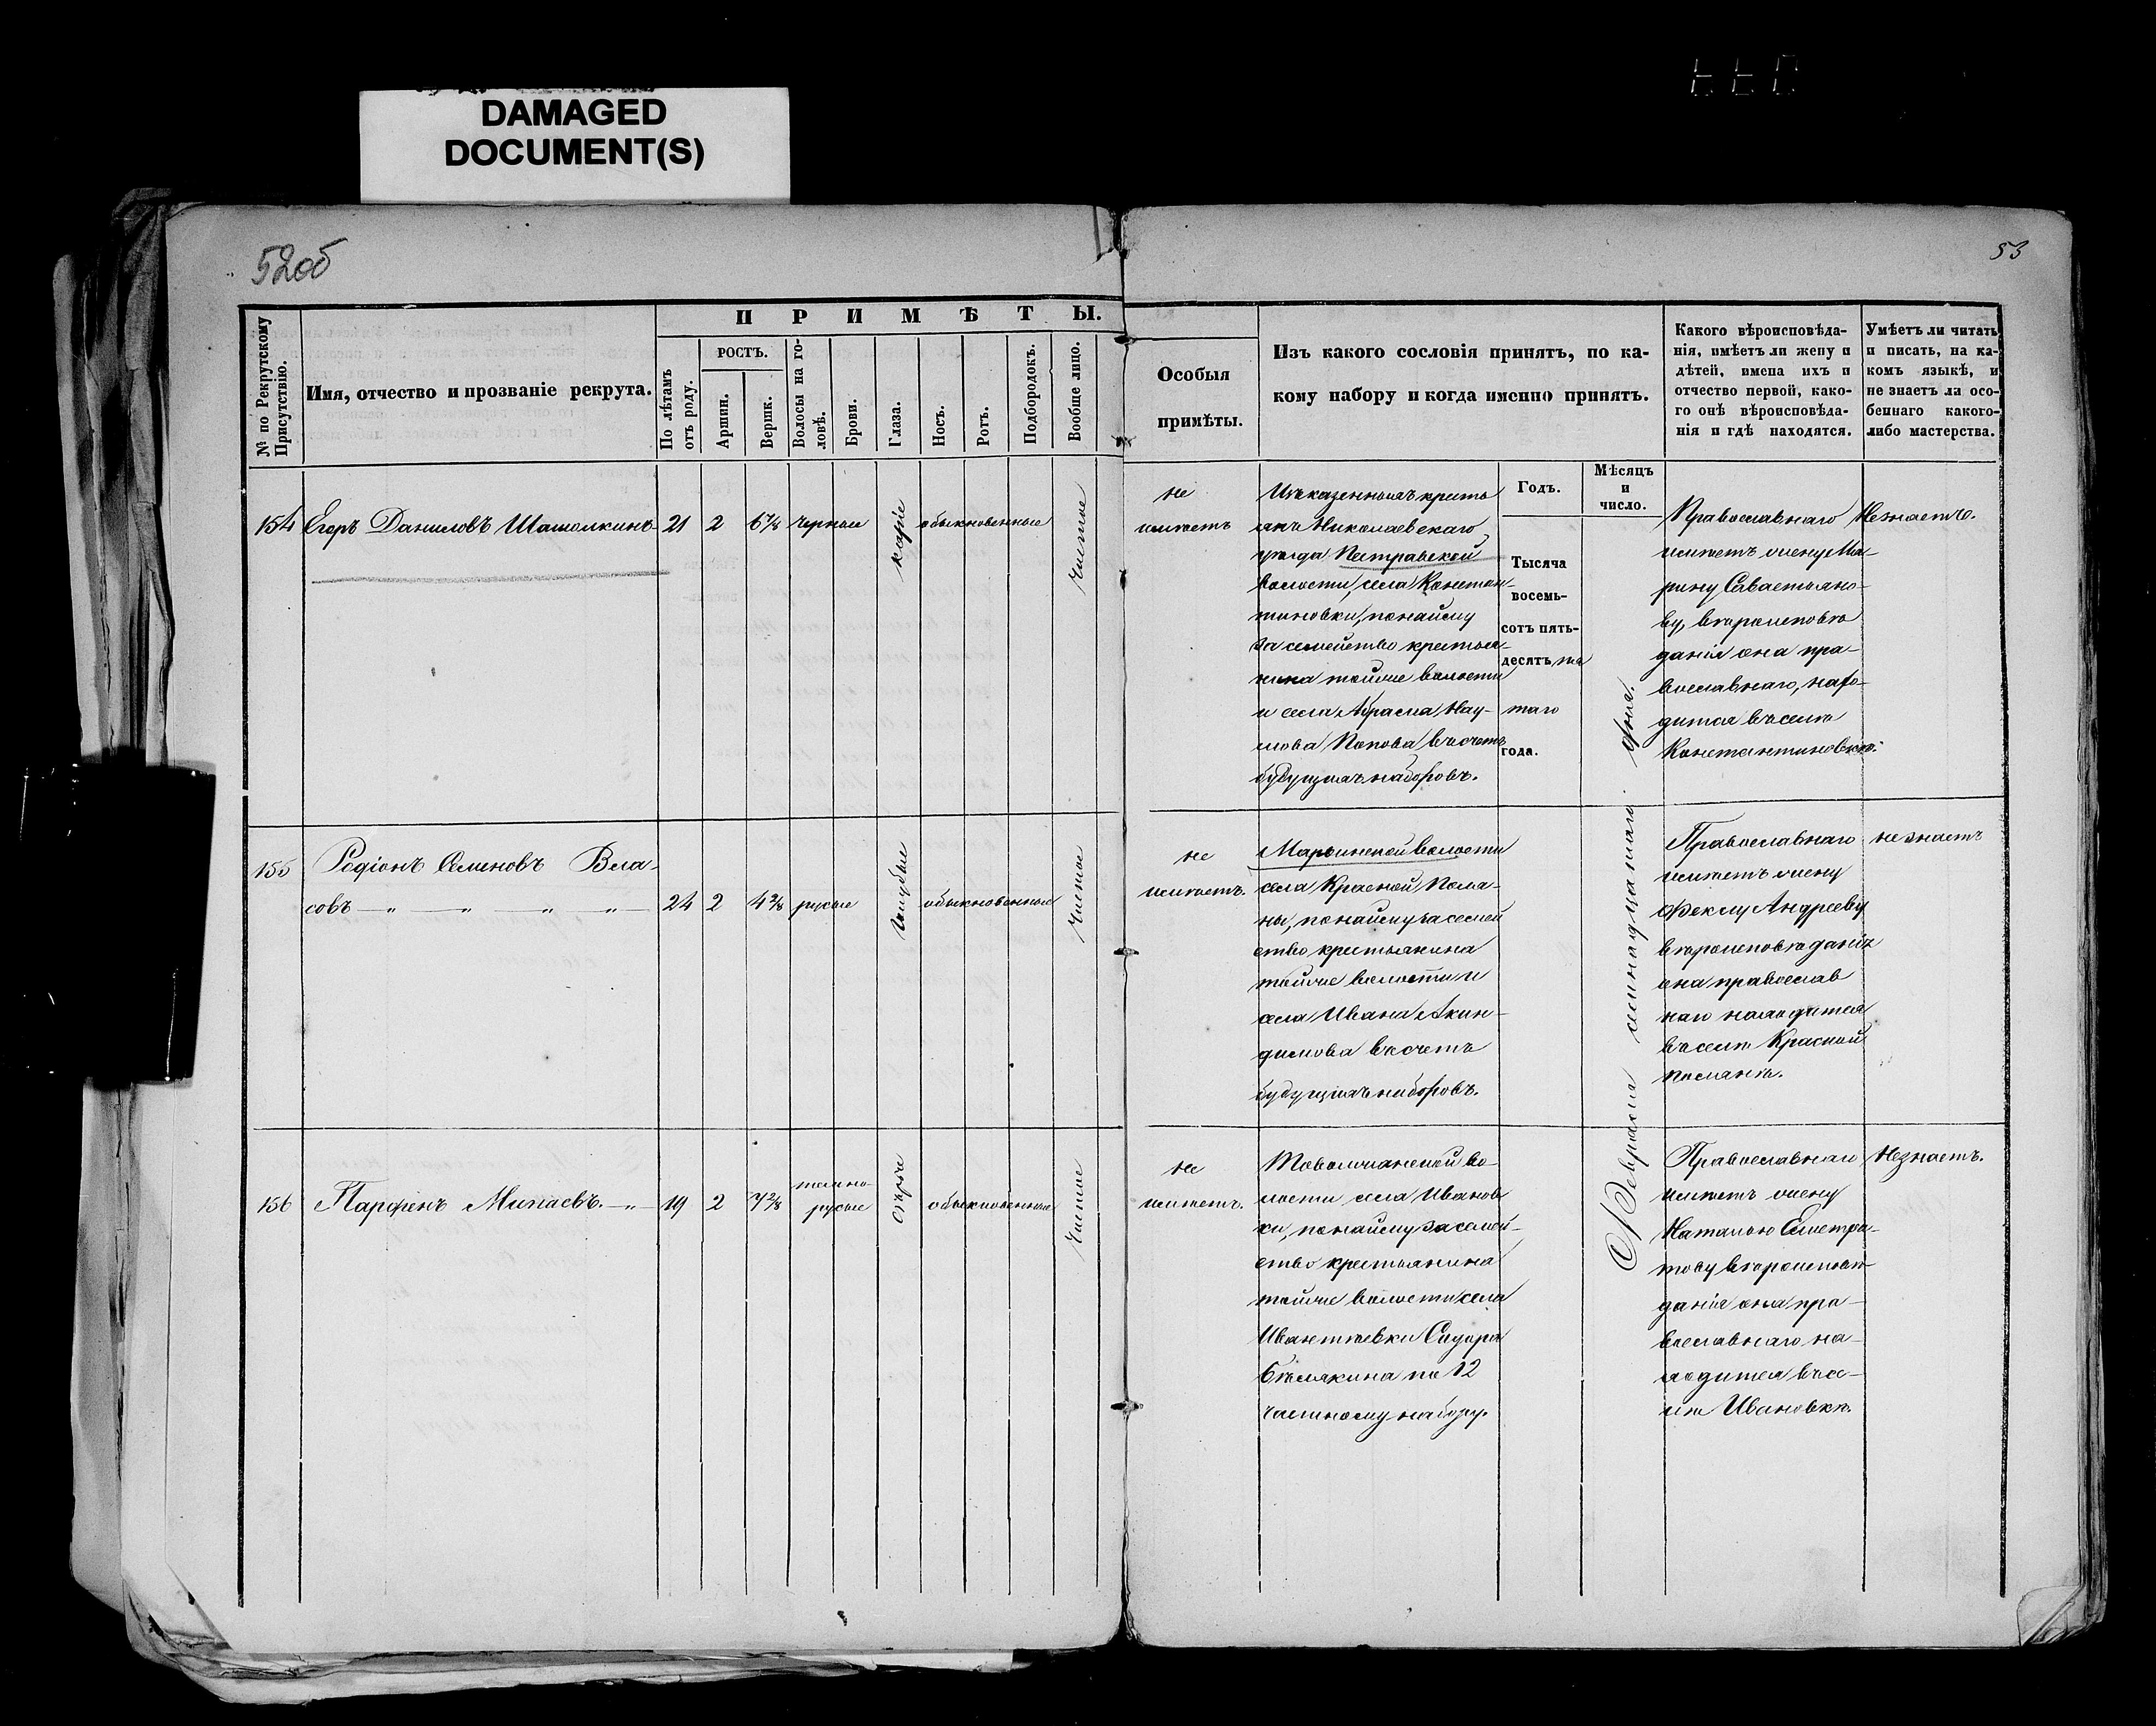 DAMAGED
DOCUMENT(S)
52об
53
№ по Рекрутскому Присутствію.
Имя, отчество и прозваніе рекрута.
ПРИМѢТЫ.
По лѣтамъ отъ роду.
РОСТЪ.
Аршин.
Вершк.
Волосы на головѣ.
Брови.
Глаза.
Носъ.
Ротъ.
Подбородокъ.
Вообще лицо.
Особыя
примѣты.
Изъ какого сословія принятъ, по ка-
кому набору и когда именно принятъ.
Какого вѣроисповѣда-
нія, имѣетъ ли жену и
дѣтей, имена ихъ и
отчество первой, како-
го онѣ вѣроисповѣда-
нія и гдѣ находятся.
Умѣетъ ли читать
и писать, на ка-
комъ языкѣ, и
не знаетъ ли осо-
беннаго какого-
либо мастерства.
Годъ.
Мѣсяцъ
и
число.
154 Егоръ Даниловъ 21 2 6 7/8 черные карие обыкновенные чистое
не
имѣетъ
Изъ казенныхъ кресть
янъ Николаевскаго
уѣзда Пестравской
волости, села Констан-
тиновки, по найму
за семейство крестья-
нина тойже волости
и села Абрама Нау-
мова Попова въ счетъ
будущихъ наборовъ.
Тысяча
восемь-
сотъ пять-
десятъ
таго
года.
Февраля семнадцатаго дня.
Православнаго
имѣетъ жену Ма-
рину Савастьяно-
ву, вѣроисповѣ
данія она пра-
вославнаго, нахо-
дится въ селѣ
Константиновкѣ.
Незнаетъ.
155 Родіонъ Семеновъ Вла-
совъ — " — " " " — 24 2 4 2/8 русые голубые обыкновенные чистое
не
имѣетъ.
Марьинской волости
села Красной Поля-
ны, по найму за семей
ство крестьянина
тойже волости и
села Ивана Акин-
димова въ счетъ
будущихъ наборовъ.
Православнаго
имѣетъ жену
Феклу Андрееву
вѣроисповѣданія
она православ
наго находится
въ селѣ Красной
Полянѣ.
не знаетъ
156 Парфенъ Минаевъ. — " — 19 2 7 2/8 темно-
русые сѣрые обыкновенные чистое
не
имѣетъ.
лости села Иванов
ки, по найму за семей-
ство крестьянина
тойже волости села
Ивантѣевки Сидора
по 12
частному набору.
Православнаго
имѣетъ жену
Наталью
вѣроисповѣ
данія она пра-
вославнаго на-
ходится въ се-
лѣ Ивановкѣ.
Незнаетъ.